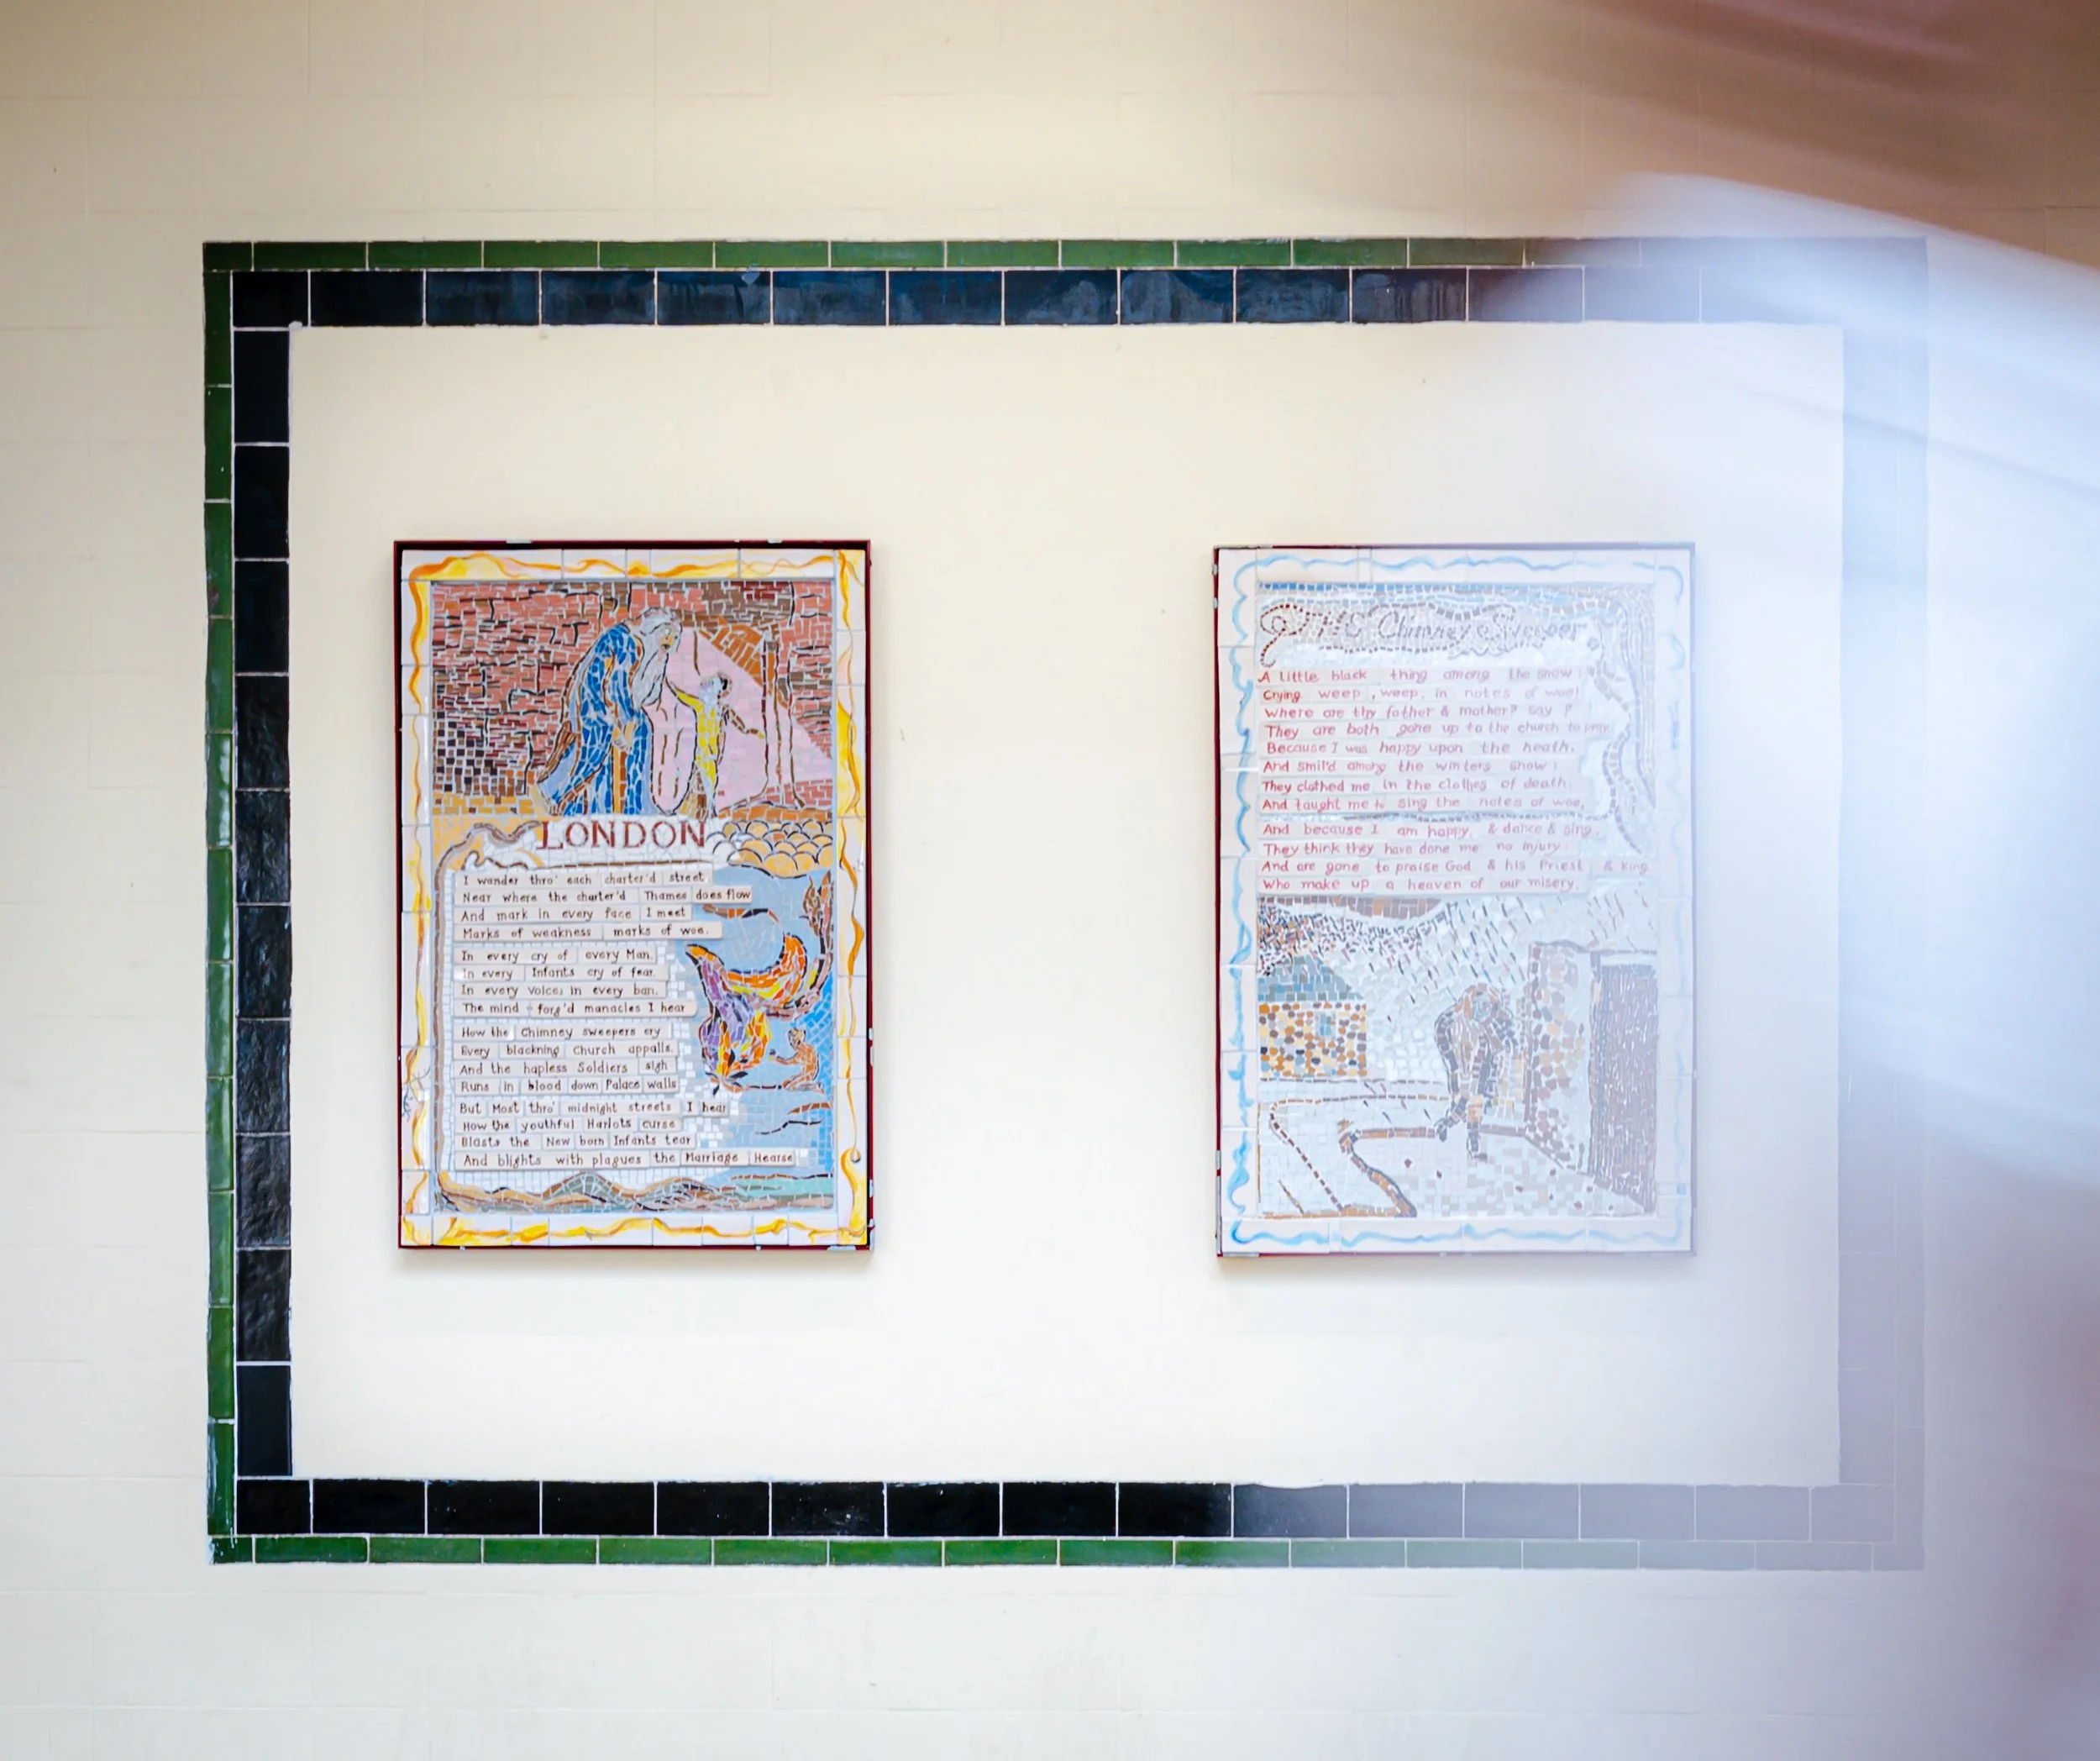 LONDON
I wander thro' each charter'd street
Near where the charter'd Thames does flow
And mark in every face I meet
Marks of weakness marks of woe.
In every cry of every Man.
In every Infants cry of fear.
In every voice; in every ban.
The mind - forg'd manacles I hear
How the Chimney sweepers cry
Every blackning Church appalls.
And the hapless Soldiers sigh
Runs in blood down Palace walls
But Most thro' midnight streets I hear
How the youthful Harlots curse
Blasts the New born Infants tear
And blights with plagues the Marriage Hearse
THE Chimney Sweeper
A little black thing among the snow:
Crying weep, weep, in notes of woe!
Where are thy father & mother? say?
They are both gone up to the church to pray
Because I was happy upon the heath,
And smil'd among the winters snow:
They clothed me in the clothes of death,
And taught me to sing the notes of woe,
And because I am happy, & dance & sing,
They think they have done me no injury:
And are gone to praise God & his Priest & King
Who make up a heaven of our misery,